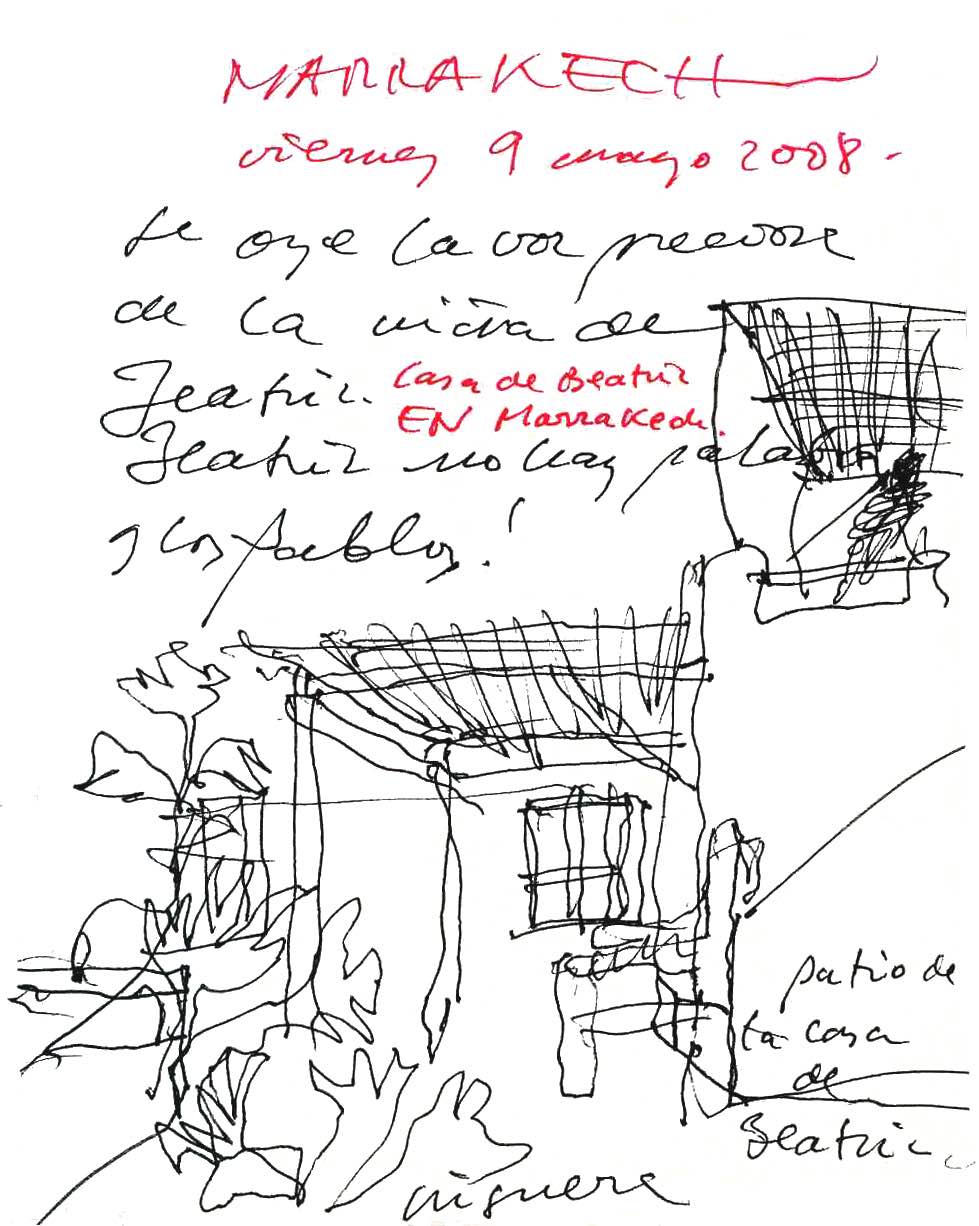 MARRAKECH
viernes 9 mayo 2008.
se oye la voz precoz
de la niña de
Beatriz.
Casa de Beatriz
EN Marrakech.
Beatriz no hay palabra
y los Pablos!
patio de
la casa
de
Beatriz
higuera